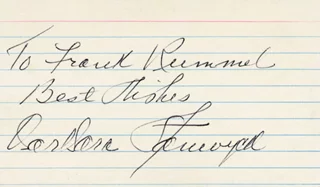 To Frank Rummel
Best Wishes
Barbara Stanwyck